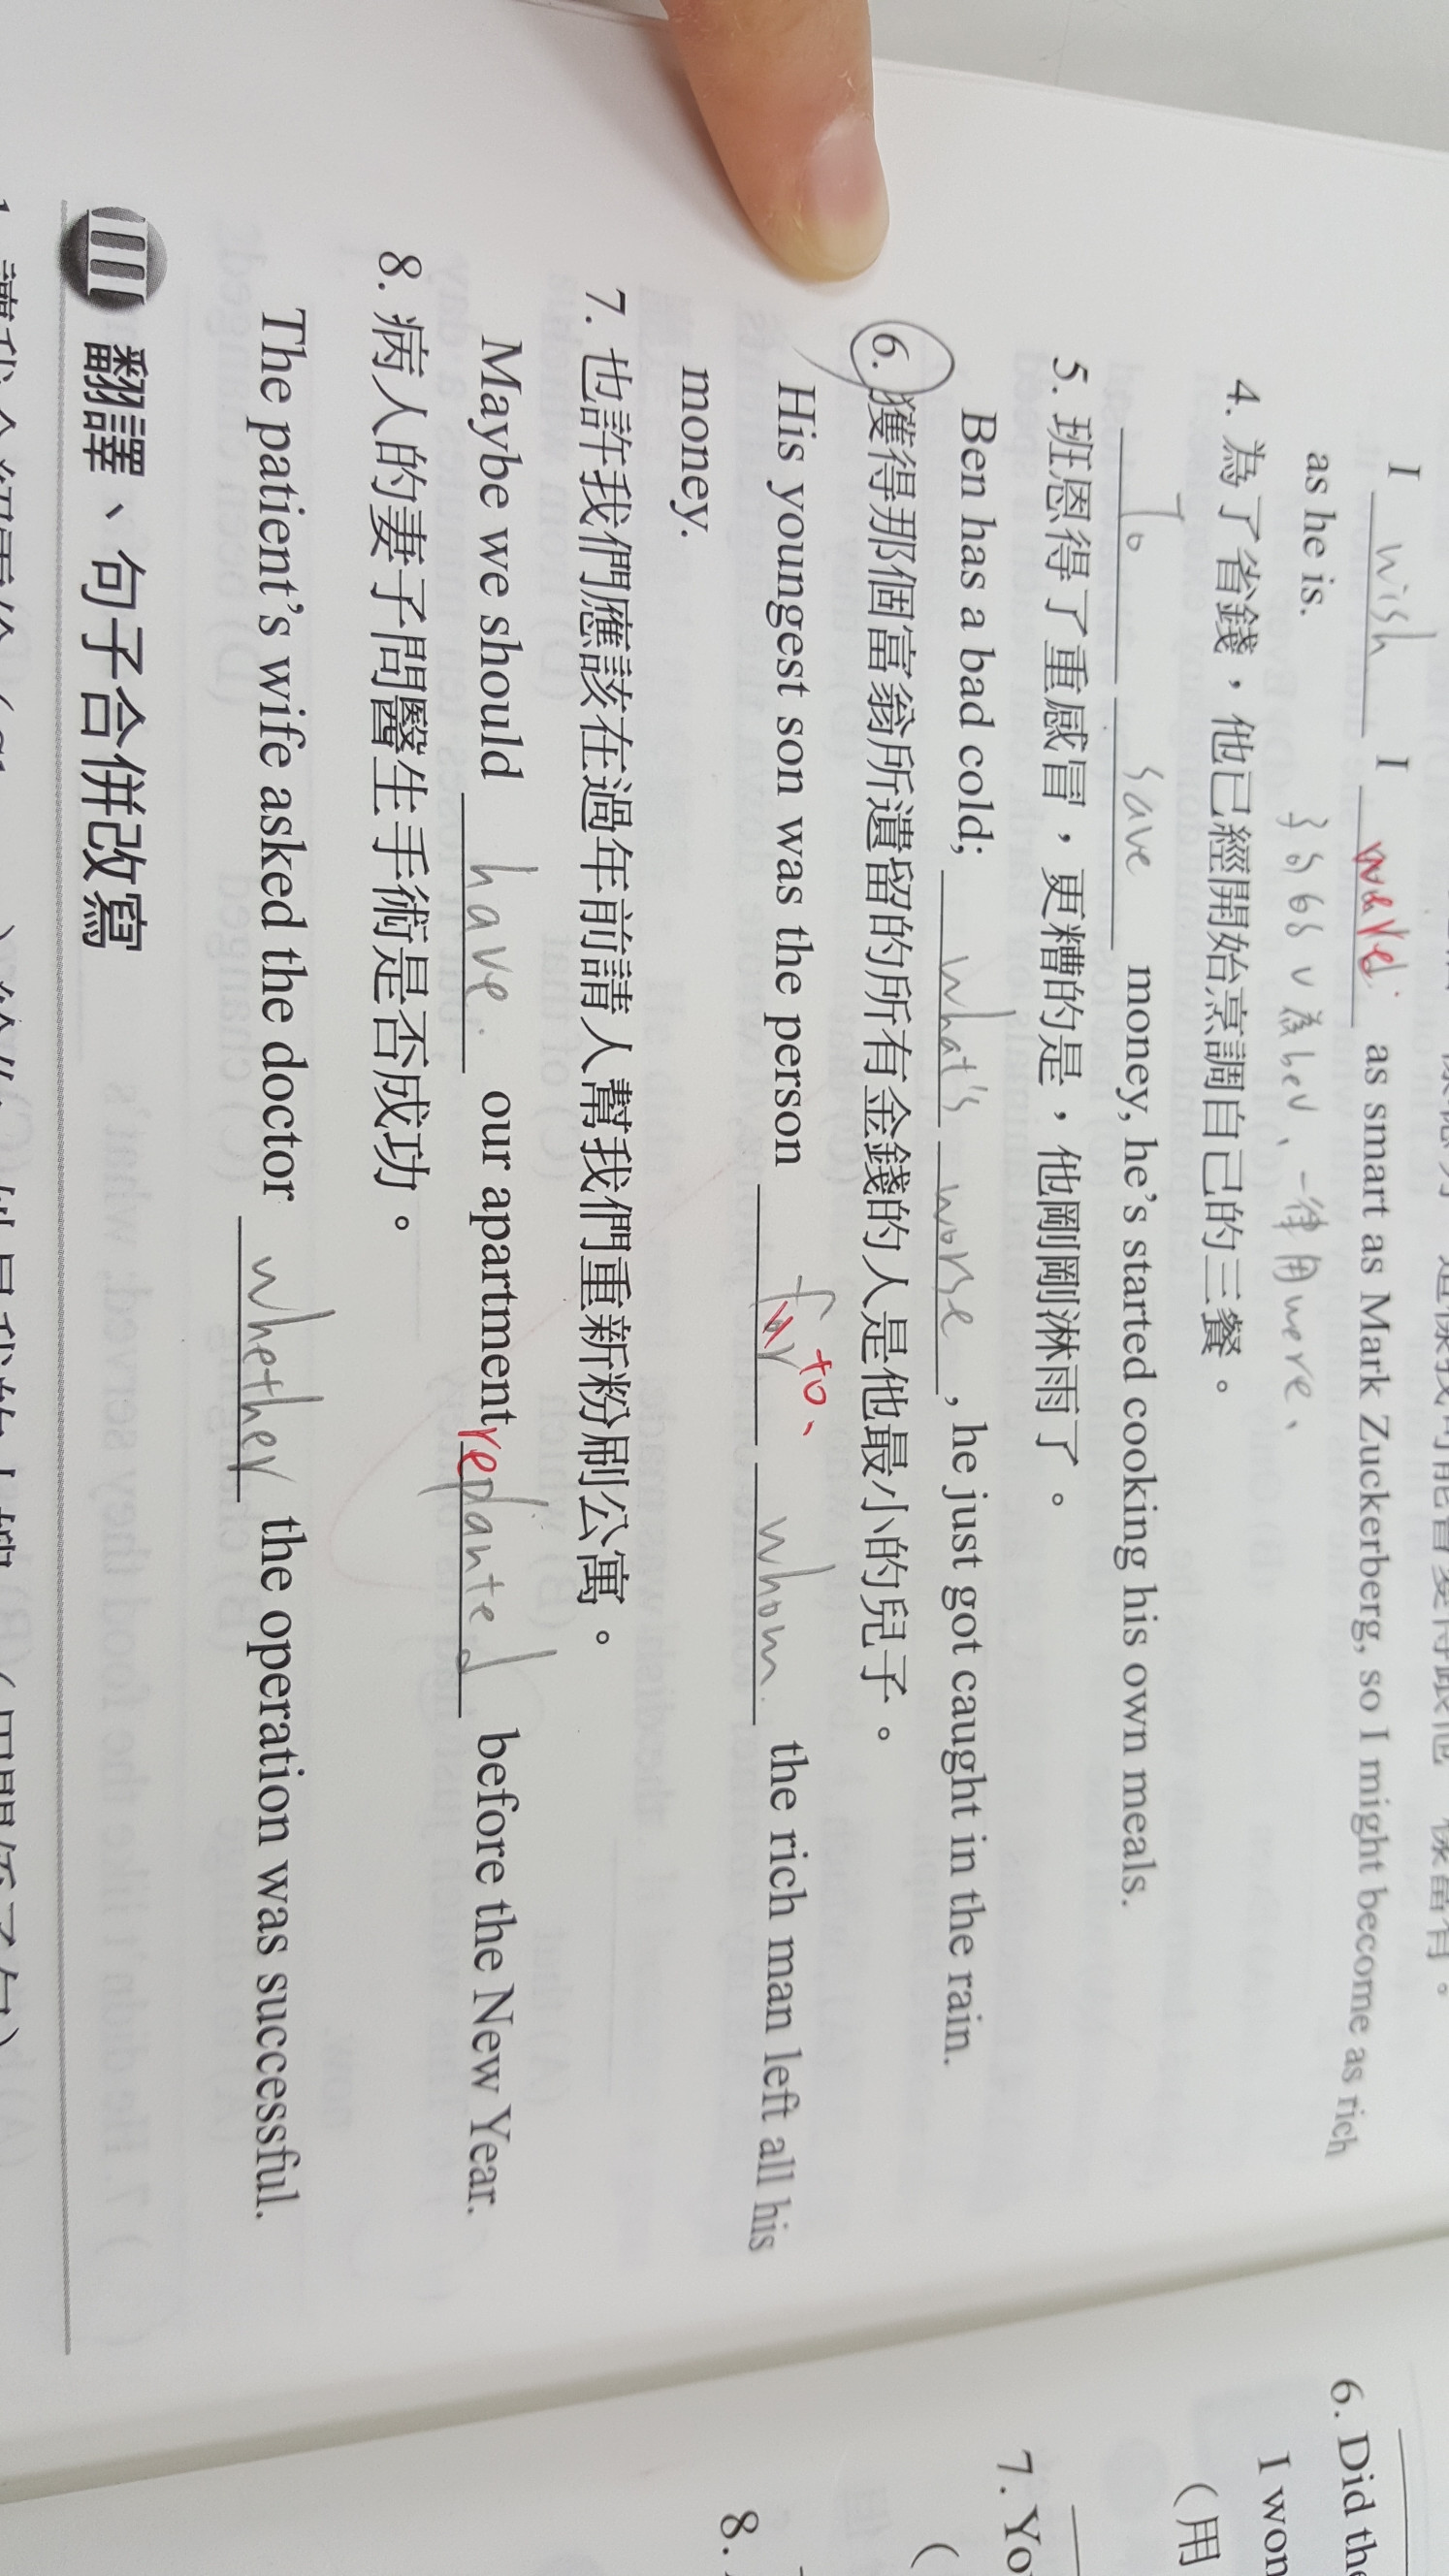 I wish I were as smart as Mark Zuckerberg, so I might become as rich
as he is.
一律用were、
4. 為了省錢，他已經開始烹調自己的三餐。
To save money, he's started cooking his own meals.
5. 班恩得了重感冒，更糟的是，他剛剛淋雨了。
Ben has a bad cold; what's worse, he just got caught in the rain.
6. 獲得那個富翁所遺留的所有金錢的人是他最小的兒子。
to、
His youngest son was the person for whom the rich man left all his
money.
7. 也許我們應該在過年前請人幫我們重新粉刷公寓。
Maybe we should have our apartment replanted before the New Year.
8. 病人的妻子問醫生手術是否成功。
The patient's wife asked the doctor whether the operation was successful.
III 翻譯、句子合併改寫
6. Did the
I won
（用
7. Yo
（
8.